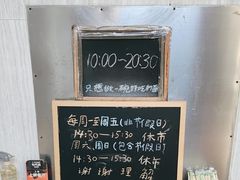 10:00~20:30
只想做一碗好吃的面
每周一至周五(非节假日)
14:30—15:30 休市
周六、周日(包含节假日)
14:30—15:30 休市
谢谢理解